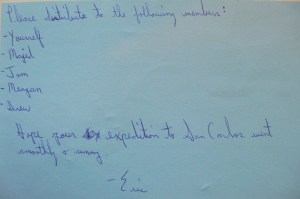 Please distribute to the following members:
- Yourself
- Majid
- Jam
- Meagan
- Drew
Hope your expedition to San Carlos went
smoothly &
- Eric